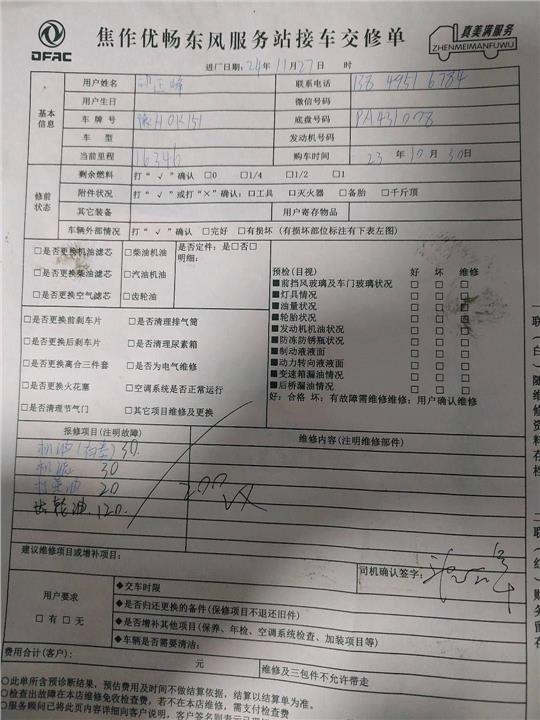 DFAC 焦作优畅东风服务站接车交修单 真美满服务
ZHENMEIMANFUWU
进厂日期：24年11月27日 时
基本信息
用户姓名 联系电话 138 4951 6784
用户生日 微信号码
车牌号 豫H0K151 底盘号码 PA431078
车型 发动机号码
当前里程 16346 购车时间 23年10月30日
修前状态
剩余燃料 打“√”确认 □0 □1/4 □1/2 □1
附件状况 打“√”或打“×”确认：□工具 □灭火器 □备胎 □千斤顶
其它装备 用户寄存物品
车辆外部情况 打“√”确认 □完好 □有损坏（有损坏部位标注有下表左图）
□是否更换机油滤芯 □柴油机油
□是否更换柴油滤芯 □汽油机油
□是否更换空气滤芯 □齿轮油
是否定件：是□否□
明细：
□是否更换前刹车片 □是否清理排气筒
□是否更换后刹车片 □是否清理尿素箱
□是否更换离合三件套 □是否为电气维修
□是否更换火花塞 □空调系统是否正常运行
□是否清理节气门 □其它项目维修及更换
预检（目视） 好 坏 维修
■前挡风玻璃及车门玻璃状况 □ □ □
■灯具情况 □ □ □
■油量状况 □ □ □
■轮胎状况 □ □ □
■发动机机油状况 □ □ □
■防冻防锈瓶状况 □ □ □
■制动液液面 □ □ □
■动力转向液液面 □ □ □
■变速箱漏油情况 □ □ □
■后桥漏油情况 □ □ □
好：合格 坏：有故障需维修维修：用户确认维修
报修项目（注明故障） 维修内容（注明维修部件）
30.
机滤 30
20
齿轮油 120.
200
建议维修项目或增补项目：
司机确认签字：
用户要求
□有 □无
◆交车时限
◆是否归还更换的备件（保修项目不退还旧件）
◆是否增补其他项目（保养、年检、空调系统检查、加装项目等）
◆车辆是否需要清油：
费用合计（客户）： 元 维修及三包件不允许带走
○此单所含预诊断结果，预估费用及时间不做结算依据，结算以结算单为准。
○检查出故障在本店维修免收检查费，若不在本店维修，需支付检查费
○服务顾问已将此页内容详细向客户说明，客户签名则表示已
联
白
随
维
修
资
料
存
档